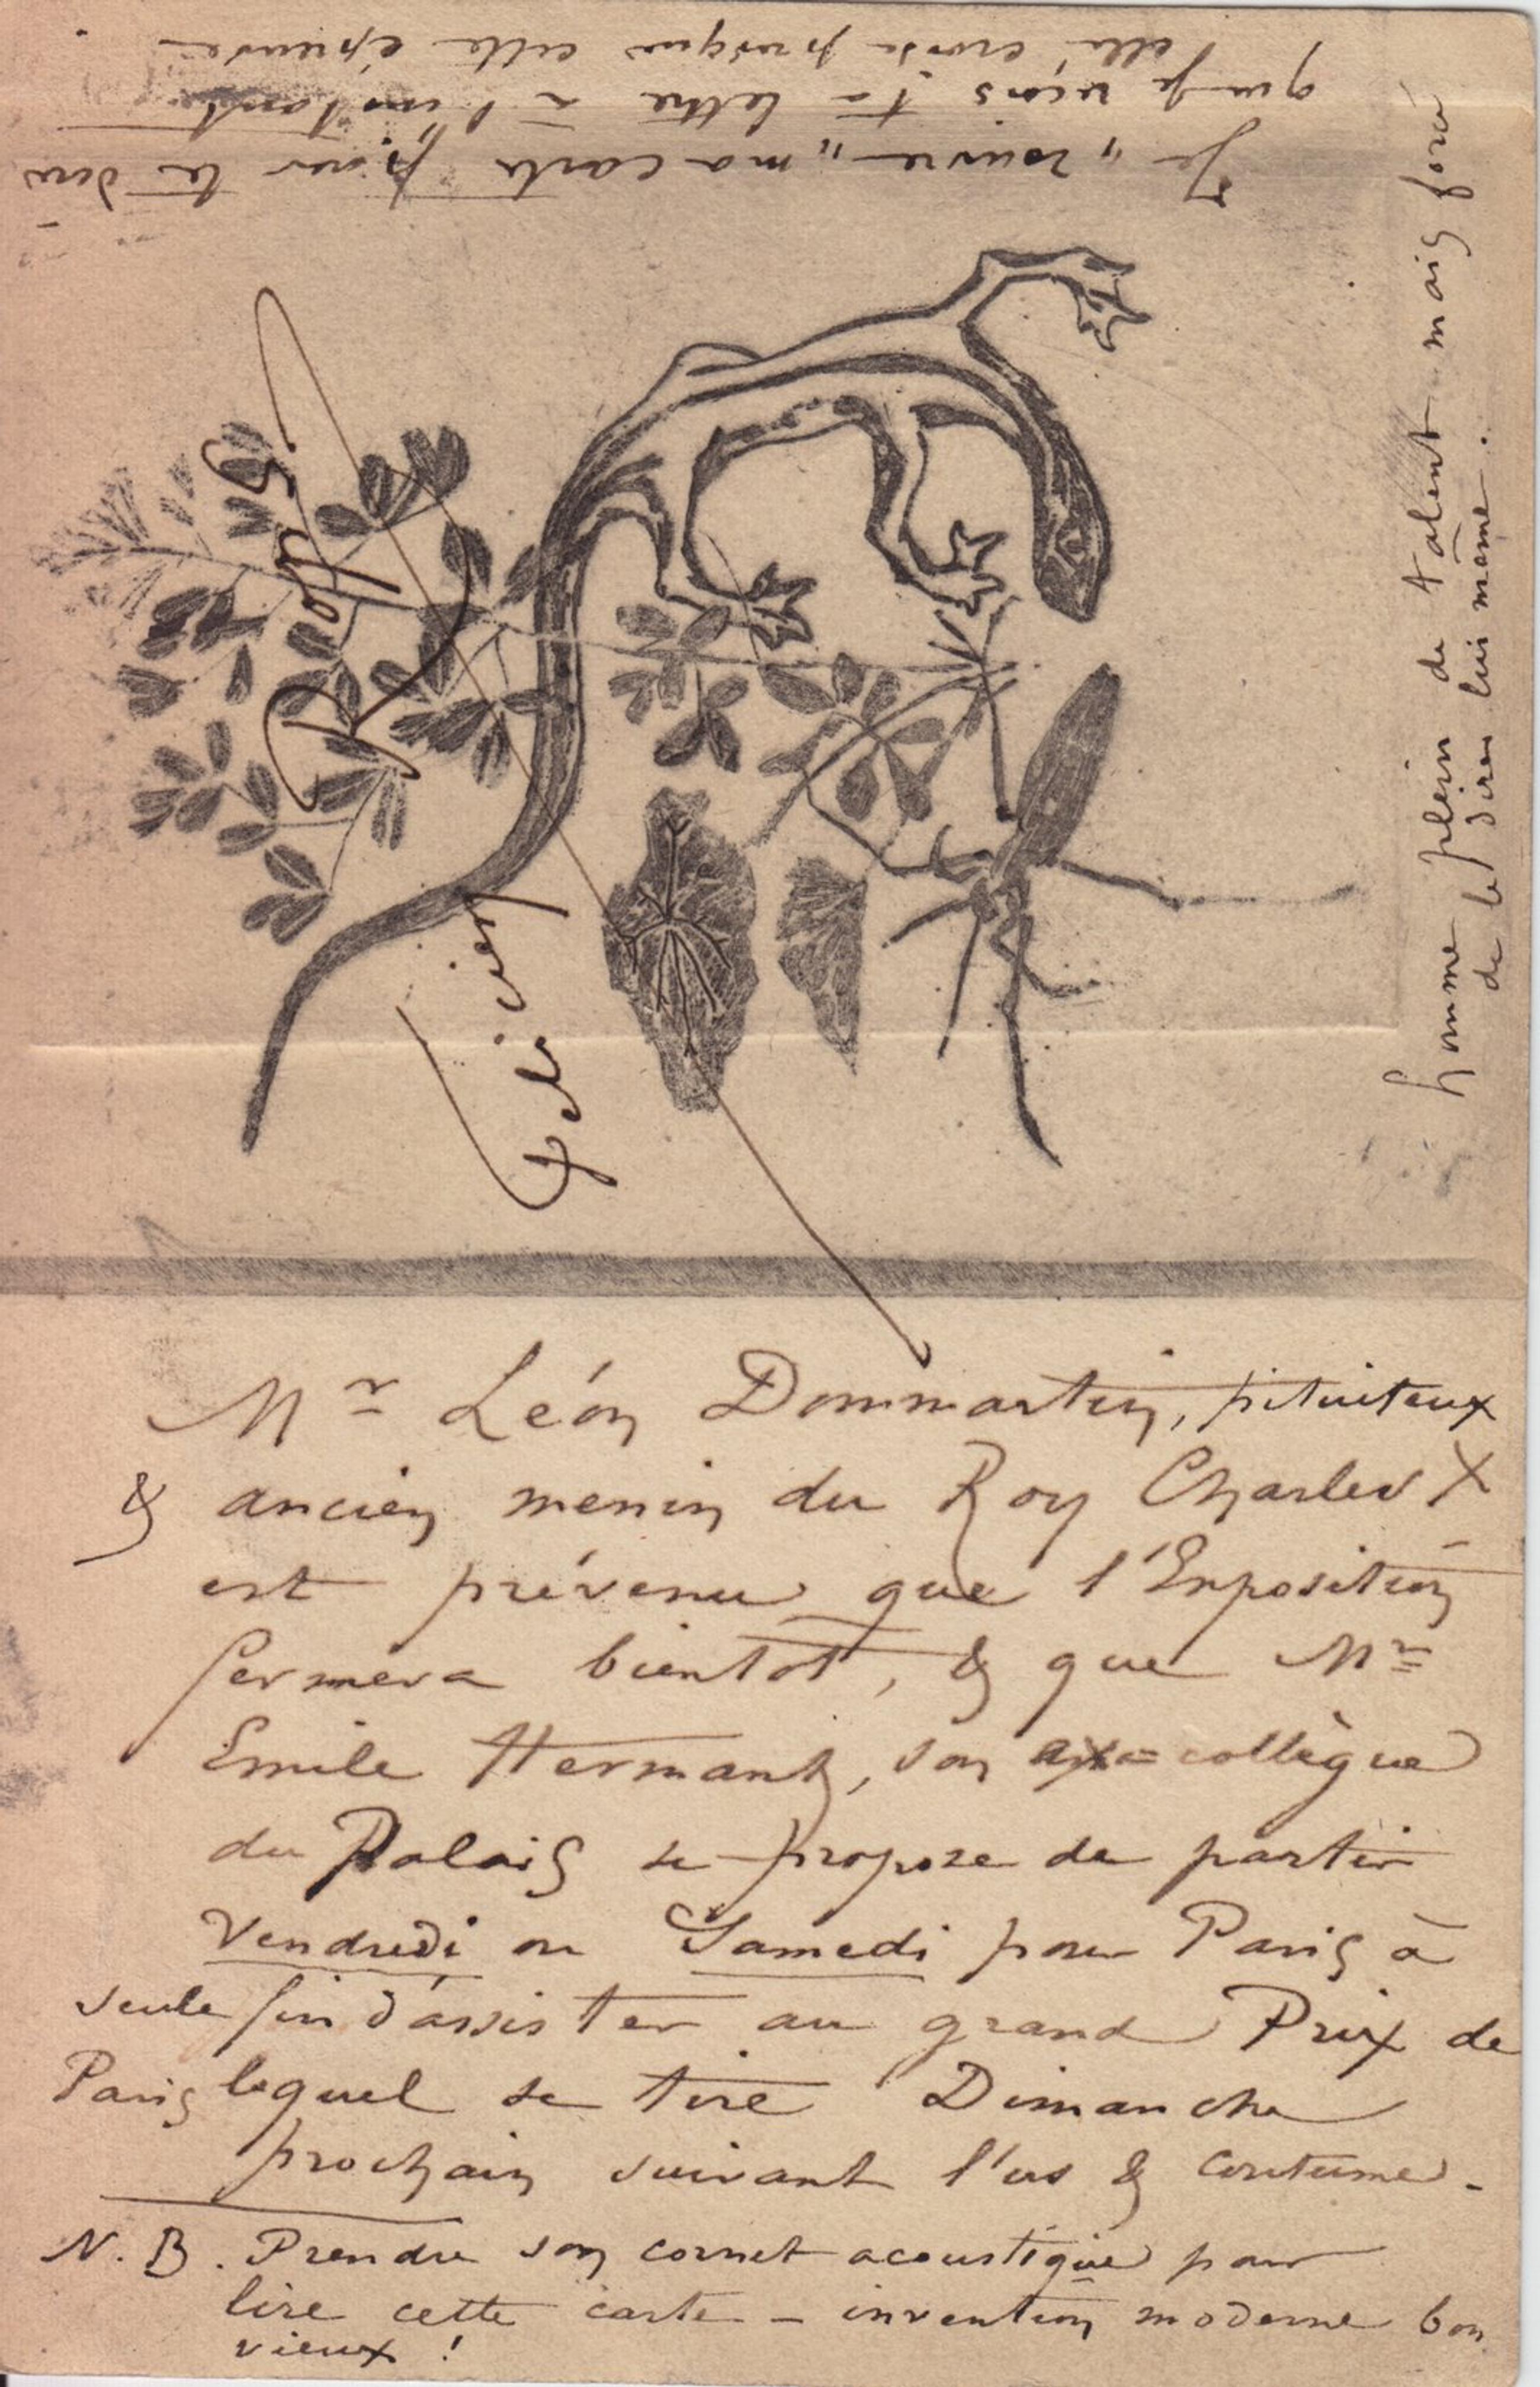 Je "rouvre" ma carte pour te dire
que je reçois ta lettre à l'instant.
elle croise presque cette épreuve
homme plein de talent mais forcé
de le dire lui même.
Félicien Rops
Mr Léon Dommartin, pituiteux
& ancien menin du Roy Charles X
est prévenu que l'Exposition
fermera bientot, & que Mr
Emile Hermant, son ex=collègue
du Palais se propose de partir
Vendredi ou Samedi pour Paris à
seule fin d'assister au grand Prix de
Paris lequel se tire Dimanche
prochain suivant l'us & coutume.
N.B. Prendre son cornet acoustique pour
lire cette carte – invention moderne bon
vieux !